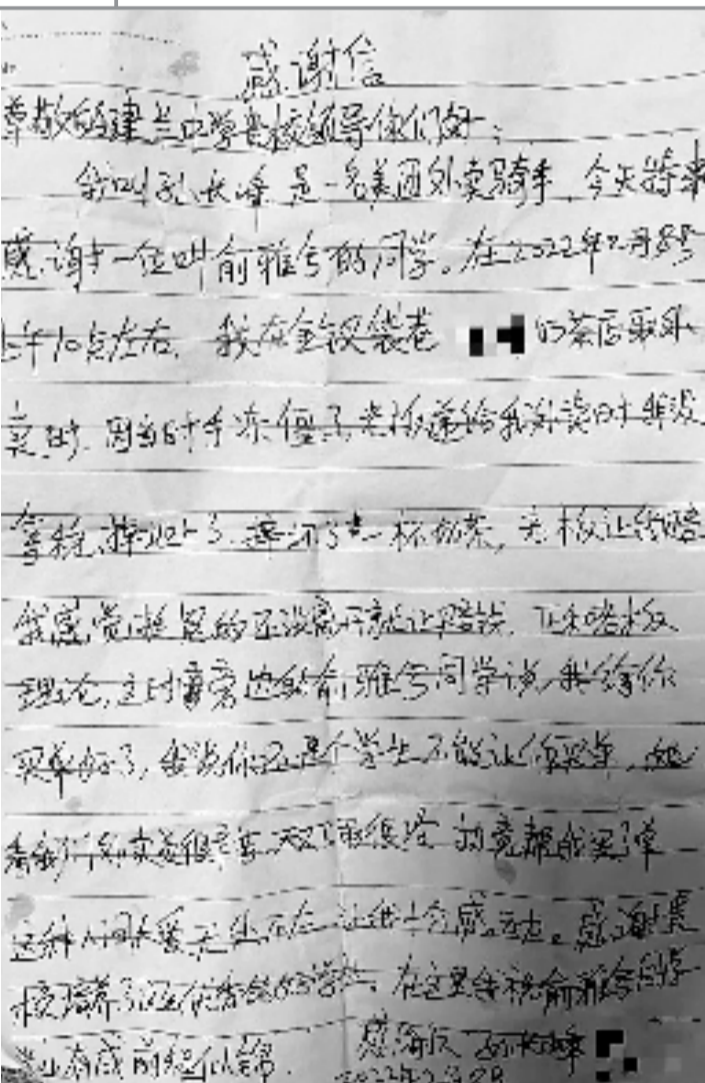 感谢信
尊敬的建兰中学学校领导你们好：
我叫孙长峰 是一名美团外卖骑手 今天特来
感谢一位叫俞雅兮的同学。在2022年2月8号
上午10点左右。我在金钗袋巷 的茶店取外
卖时。因当时手冻僵了老板递给我外卖时我没
拿稳。掉地上了。摔坏了一杯奶茶，老板让我赔
我感觉 的还没离开就让陪钱。正和老板
理论，这时旁边的俞雅兮同学说，我给你
买单好了，我说你还是个学生不能让你买单，她
看我们外卖员很辛苦天又很冷 的竟帮我买了单
这种人间大爱无处不在 让我十分感动。感谢贵
校培养了这位优秀的学生。在这里我祝俞雅兮同学
学业有成前程似锦。 感谢人 孙长峰
2022年2月8日